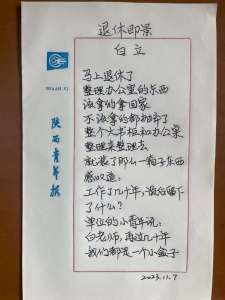 退休即景
白立
马上退休了
整理办公室的东西
该拿的拿回家
不该拿的都扔了
整个大书柜和办公桌
整理来整理去
就装了那么一箱子东西
感叹道：
工作了几十年，没留下
了什么？
单位的小青年说：
白老师，再过几十年
我们都是一个小盒子
2023.11.7
陕西青年报